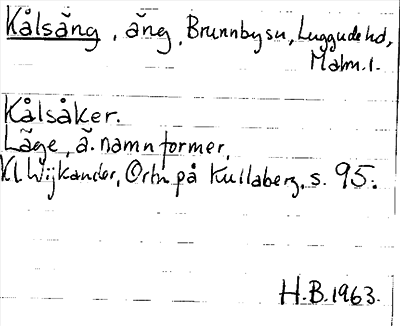 Kålsäng, äng, Brunnby sn, Luggude hd,
Malm. l.
Kålsåker.
Läge, ä. namnformer,
Kl. Wijkander, Ortn. på Kullaberg, s. 95.
H.B. 1963.